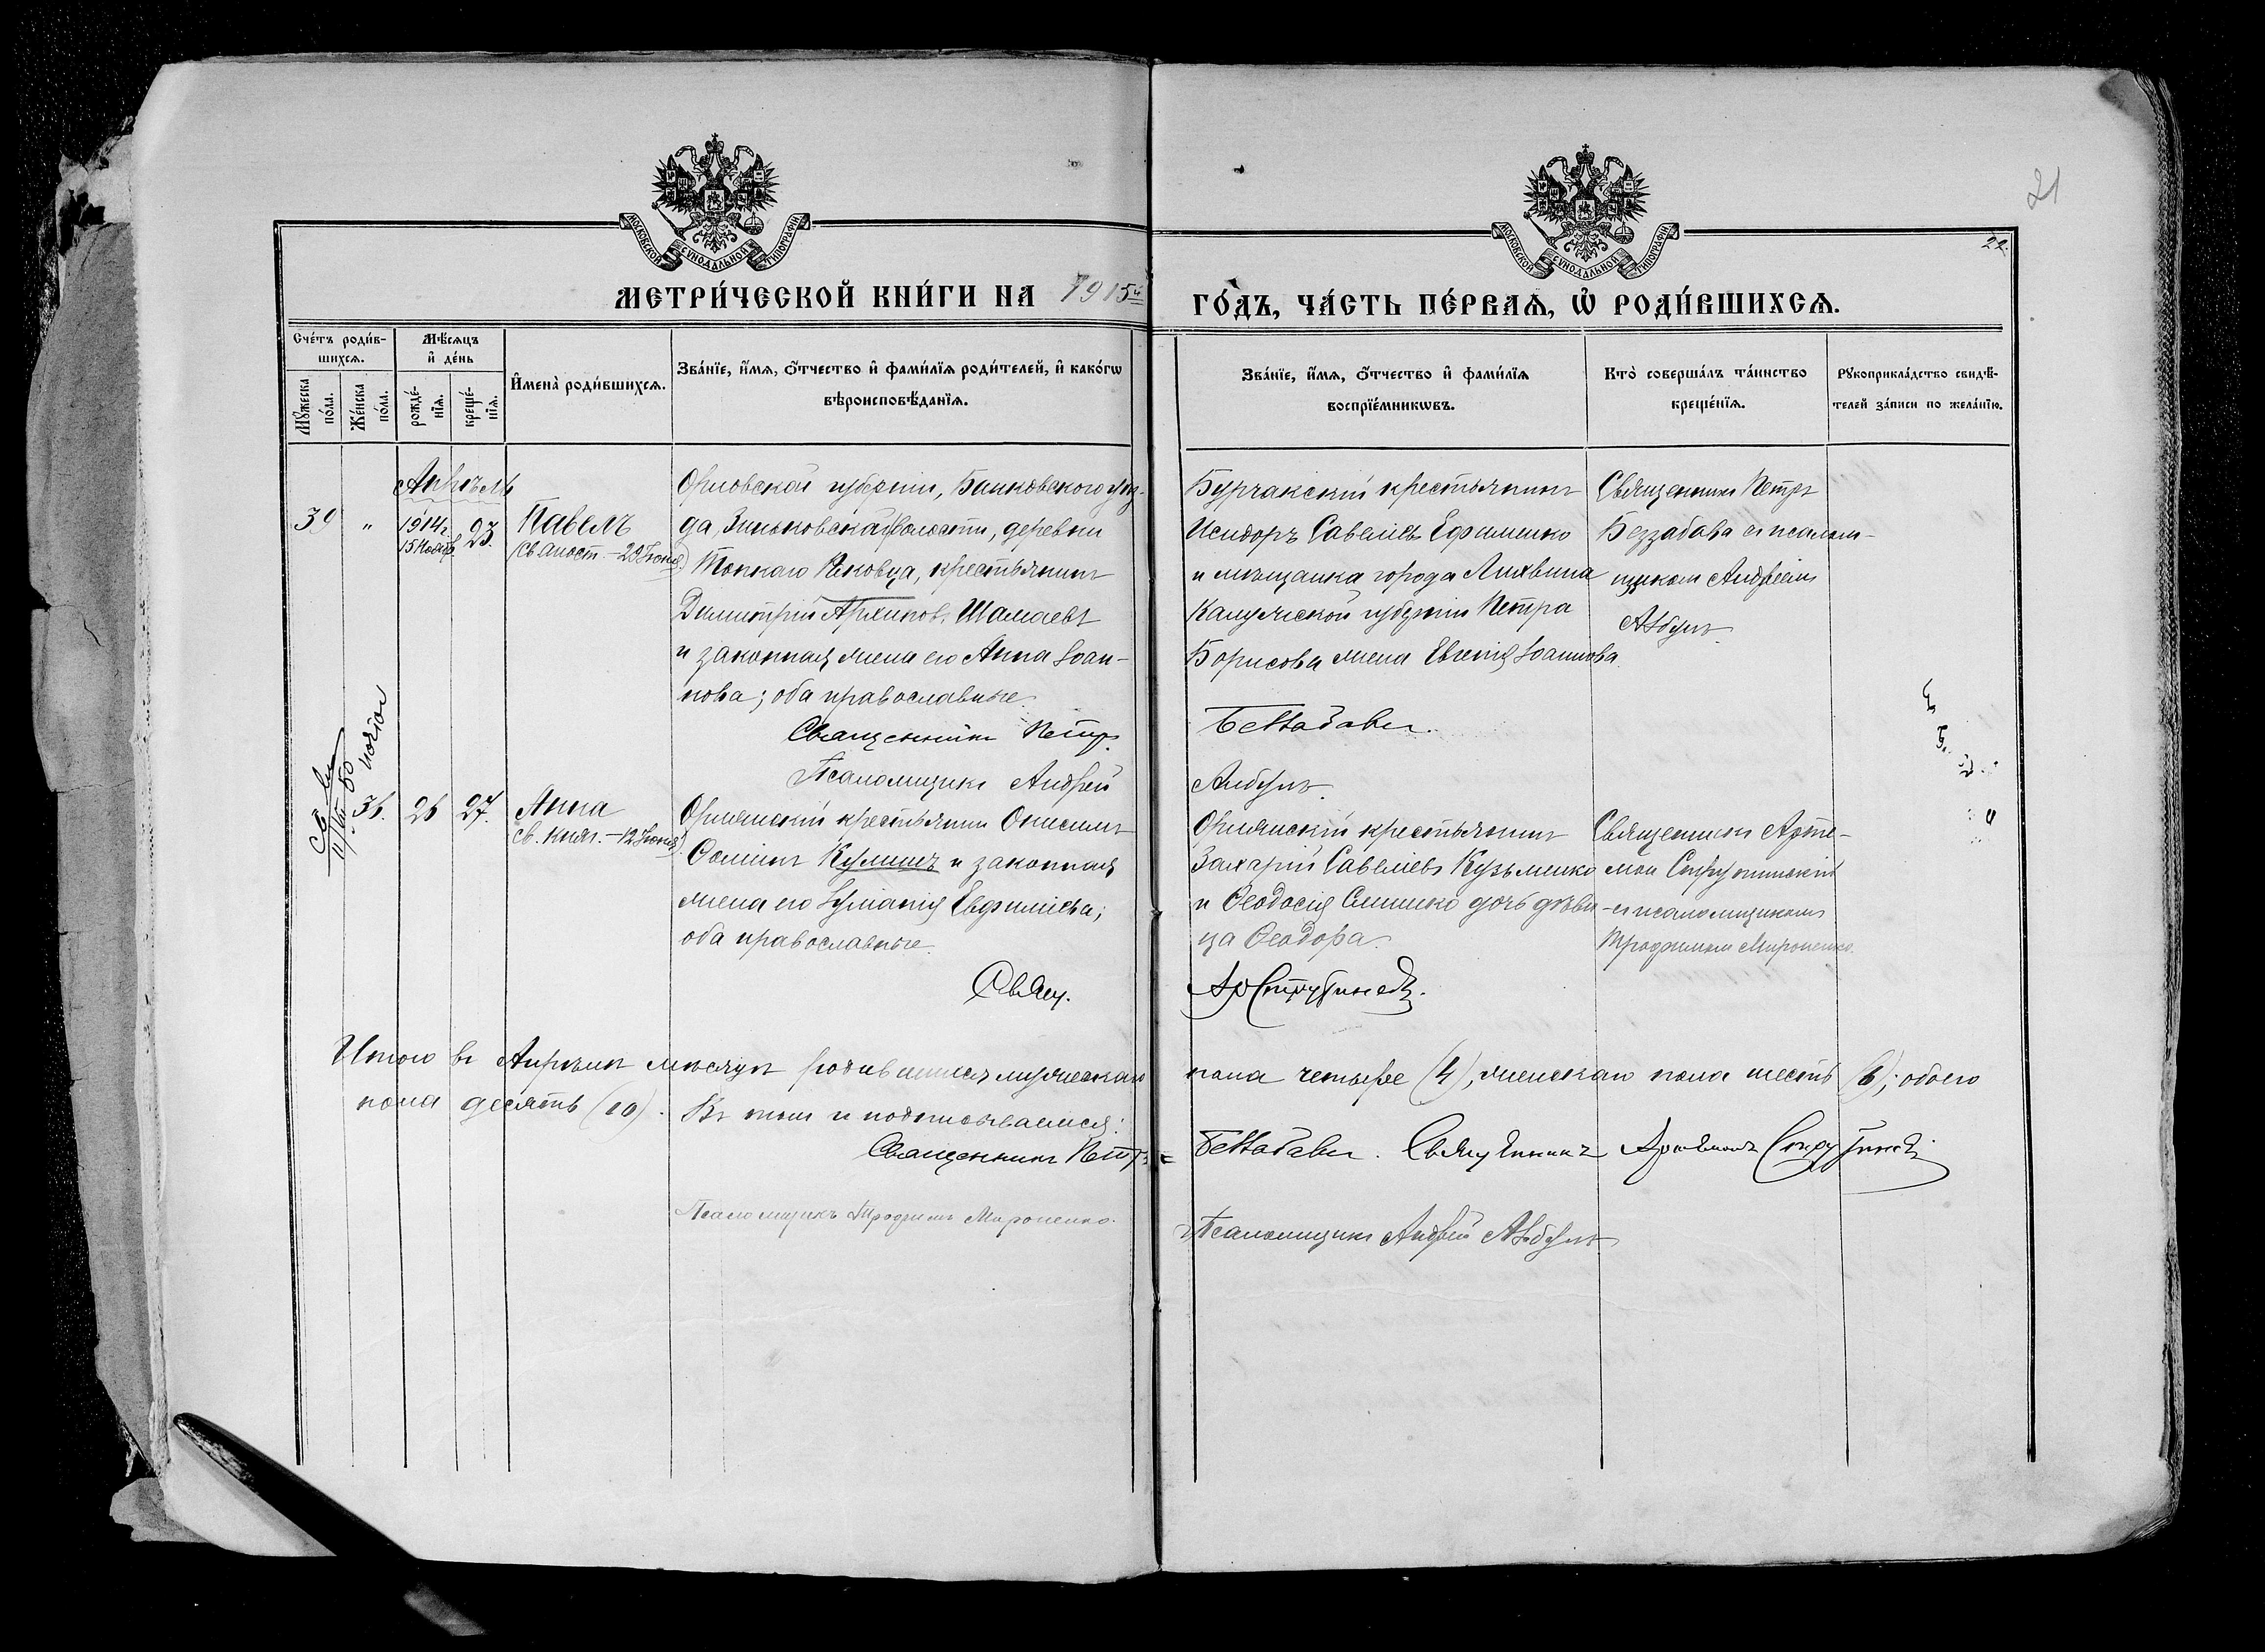 21
22.
МОСКОВСКОЙ СУНОДАЛЬНОЙ ТИПОГРАФІИ
МОСКОВСКОЙ СУНОДАЛЬНОЙ ТИПОГРАФІИ
МЕТРИ́ЧЕСКОЙ КНИ́ГИ НА 1915й
ГО́ДЪ, ЧА́СТЬ ПЕ́РВАѦ, Ѡ҆ РОДИ́ВШИХСѦ.
Сче́тъ роди́в-
шихсѧ.
Мꙋ́жеска по́ла.
Же́нска по́ла.
Мѣ́сѧцъ
и҆ де́нь
рожде́-
нїѧ.
креще́-
нїѧ.
И҆мена̀ роди́вшихсѧ.
Зва́нїе, и҆́мѧ, ѻ҆́тчество и҆ фами́лїѧ роди́телей, и҆ како́гѡ
вѣроисповѣ́данїѧ.
Зва́нїе, и҆́мѧ, ѻ҆́тчество и҆ фами́лїѧ
воспрїе́мникѡвъ.
Кто̀ соверша́лъ та́инство
креще́нїѧ.
Рꙋкоприкла́дство свидѣ́-
телей за́писи по жела́нїю.
Апрѣль
39 " 1914г. 15 Ноябр. 23. Павелъ
(св. апост. – 29 Іюня)
Орловской губерніи, уѣз-
да, Зиньковской волости, деревни
крестьянинъ
Димитрій Архипов. Шамаевъ
и законная жена его Анна Іоан-
нова; оба православные.
Священникъ Петр
Псаломщикъ Андрей
Бурчакскій крестьянинъ
Исидоръ Савеліевъ Ефименко
и мѣщанка города Лихвина
Калужской губерніи Петра
Борисова жена Евгенія Іоаннова.
Беззабава.
Албулъ.
Священникъ Петръ
Беззабава съ псалом-
щикомъ Андреемъ
Албулъ.
36. 26 27. Анна
св. княг. – 12 Іюня)
Орлянскій крестьянинъ Онисимъ
Ѳоминъ Кулишъ и законная
жена его Іуліанія Евфиміева;
оба православные.
Свящ.
Орлянскій крестьянинъ
Захарій Савеліевъ Кузьменко
и Ѳеодосія дочь дѣви-
ца Ѳеодора.
Ар Струтинскій.
Священникъ Арте-
мон Струтинскій
съ псаломщикомъ
Трофимомъ Мироненко.
Итого въ Апрѣлѣ мѣсяцѣ родившихся мужескаго
пола четыре (4), женскаго пола шесть (6); обоего
пола десять (10). Въ томъ и подписываемся:
Священникъ Петръ Беззабава. Священникъ Артемонъ Струтинскій
Псаломщикъ Трофимъ Мироненко.
Псаломщикъ Андрей Албулъ